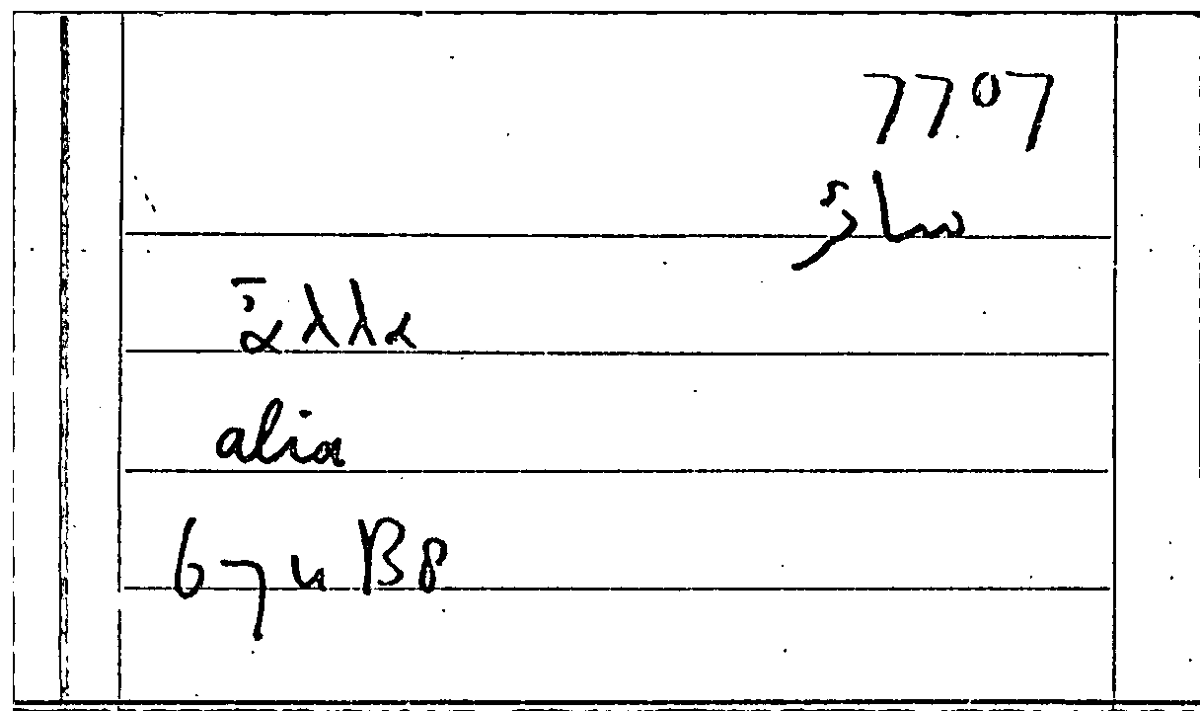 7707
سائر
ἄλλα
alia
67 u B8